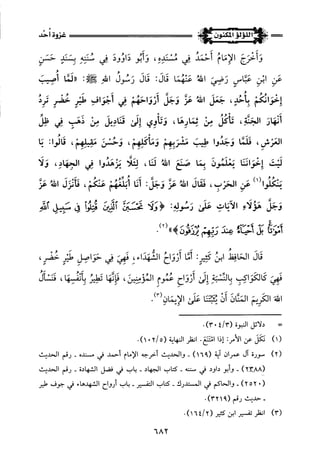 غزوة أحد
اللؤلؤ المكنون
وَأَخْرَجَ الإِمَامُ أَحْمَدُ فِي مُسْنَدِهِ، وَأَبُو دَاوُدَ فِي سُنَنِهِ بِسَنَدٍ حَسَنٍ
عَنِ ابْنِ عَبَّاسٍ رَضِيَ اللهُ عَنْهُمَا قَالَ: قَالَ رَسُولُ اللهِ ﷺ: «لَمَّا أُصِيبَ
إِخْوَانُكُمْ بِأُحُدٍ، جَعَلَ اللهُ عَزَّ وَجَلَّ أَرْوَاحَهُمْ فِي أَجْوَافِ طَيْرٍ خُضْرٍ تَرِدُ
أَنْهَارَ الجَنَّةِ، تَأْكُلُ مِنْ ثِمَارِهَا، وَتَأْوِي إِلَى قَنَادِيلَ مِنْ ذَهَبٍ فِي ظِلِّ
العَرْشِ، فَلَمَّا وَجَدُوا طِيبَ مَشْرَبِهِمْ وَمَأْكَلِهِمْ، وَحُسْنَ مَقِيلِهِمْ، قَالُوا: يَا
لَيْتَ إِخْوَانَنَا يَعْلَمُونَ بِمَا صَنَعَ اللهُ لَنَا، لِئَلَّا يَزْهَدُوا فِي الجِهَادِ، وَلَا
يَنْكُلُوا(١) عَنِ الحَرْبِ، فَقَالَ اللهُ عَزَّ وَجَلَّ: أَنَا أُبَلِّغُهُمْ عَنْكُمْ، فَأَنْزَلَ اللهُ عَزَّ
وَجَلَّ هَؤُلَاءِ الآيَاتِ عَلَى رَسُولِهِ: ﴿وَلَا تَحْسَبَنَّ ٱلَّذِينَ قُتِلُوا۟ فِى سَبِيلِ ٱللَّهِ
أَمْوَٰتًۢا بَلْ أَحْيَآءٌ عِندَ رَبِّهِمْ يُرْزَقُونَ﴾»(٢).
قَالَ الحَافِظُ ابْنُ كَثِيرٍ: أَمَّا أَرْوَاحُ الشُّهَدَاءِ، فَهِيَ فِي حَوَاصِلِ طَيْرٍ خُضْرٍ،
فَهِيَ كَالكَوَاكِبِ بِالنِّسْبَةِ إِلَى أَرْوَاحِ عُمُومِ المُؤْمِنِينَ، فَإِنَّهَا تَطِيرُ بِأَنْفُسِهَا، فَنَسْأَلُ
اللهَ الكَرِيمَ المَنَّانَ أَنْ يُثَبِّتَنَا عَلَى الإِيمَانِ(٣).
= دلائل النبوة (٣٠٤/٣).
(١) نَكَلَ عن الأمر: إذا امْتَنَعَ. انظر النهاية (١٠٢/٥).
(٢) سورة آل عمران آية (١٦٩) - والحديث أخرجه الإمام أحمد في مسنده - رقم الحديث
(٢٣٨٨) - وأبو داود في سننه - كتاب الجهاد - باب في فضل الشهادة - رقم الحديث
(٢٥٢٠) - والحاكم في المستدرك - كتاب التفسير - باب أرواح الشهداء في جوف طير
- حديث رقم (٣٢١٩).
(٣) انظر تفسير ابن كثير (١٦٤/٢).
٦٨٢